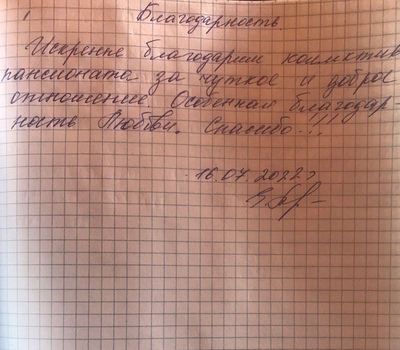 Благодарность
Искренне благодарим коллектив
пансионата за чуткое и доброе
отношение. Особенная благодар-
ность Любви. Спасибо!!!
16.07.2022г